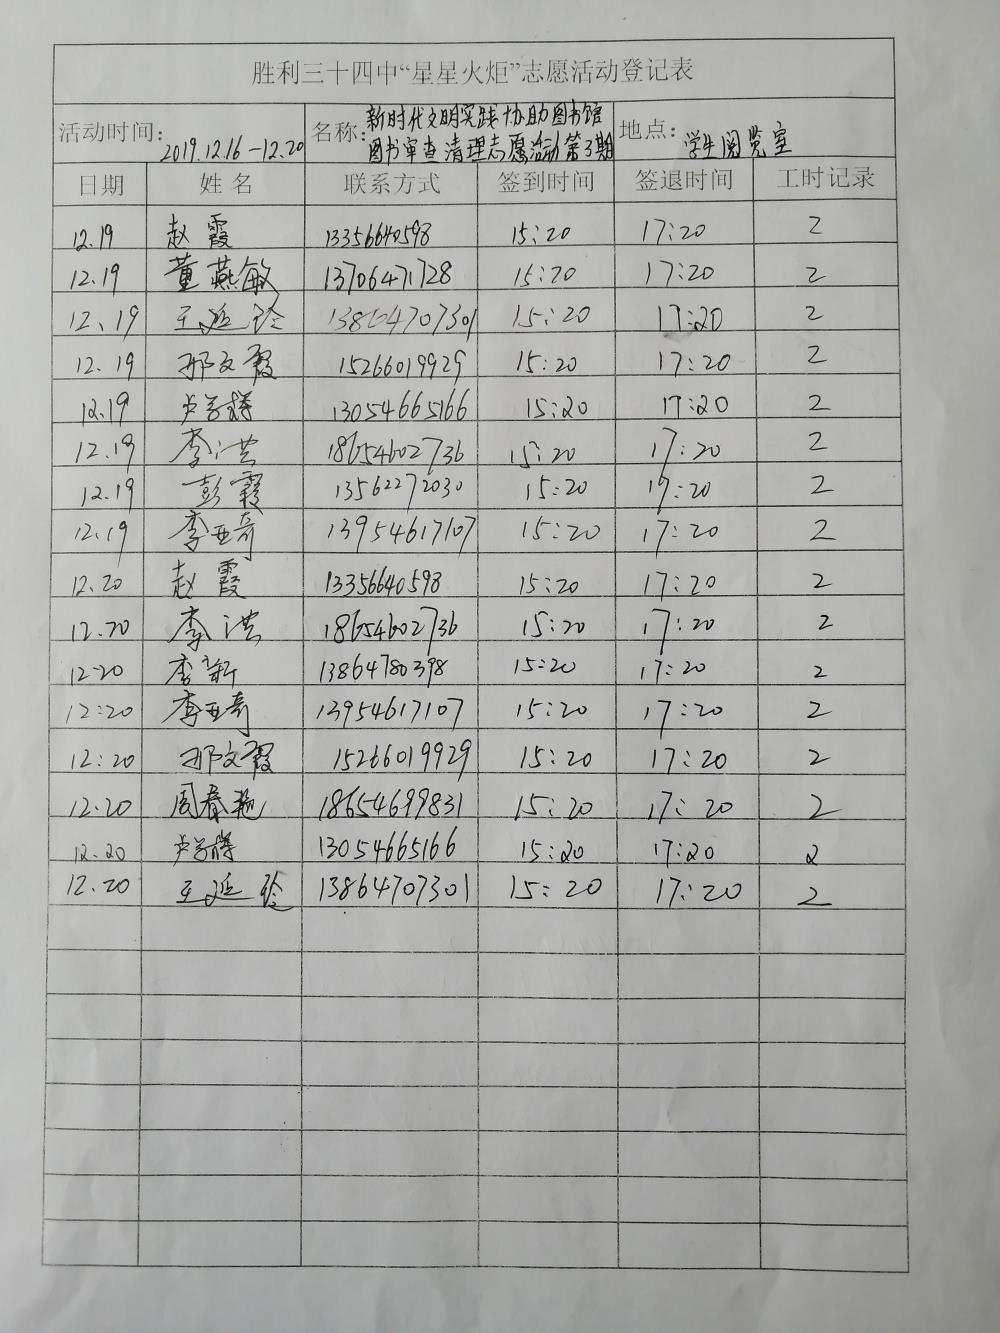 胜利三十四中“星星火炬”志愿活动登记表
活动时间: 2019.12.16-12.20 名称: 新时代文明实践协助图书馆图书审查清理志愿活动第3期 地点: 学生阅览室
日期 姓名 联系方式 签到时间 签退时间 工时记录
12.19 赵霞 13356640598 15:20 17:20 2
12.19 董燕敏 13706471728 15:20 17:20 2
12.19 王延玲 13864707301 15:20 17:20 2
12.19 邢文霞 15266019929 15:20 17:20 2
12.19 13054665166 15:20 17:20 2
12.19 李洪 18654602736 15:20 17:20 2
12.19 彭霞 13562272030 15:20 17:20 2
12.19 李亚奇 13954617107 15:20 17:20 2
12.20 赵霞 13356640598 15:20 17:20 2
12.20 李洪 18654602736 15:20 17:20 2
12.20 李新 13864780398 15:20 17:20 2
12:20 李亚奇 13954617107 15:20 17:20 2
12:20 邢文霞 15266019929 15:20 17:20 2
12.20 周春艳 18654699831 15:20 17:20 2
12.20 13054665166 15:20 17:20 2
12.20 王延玲 13864707301 15:20 17:20 2